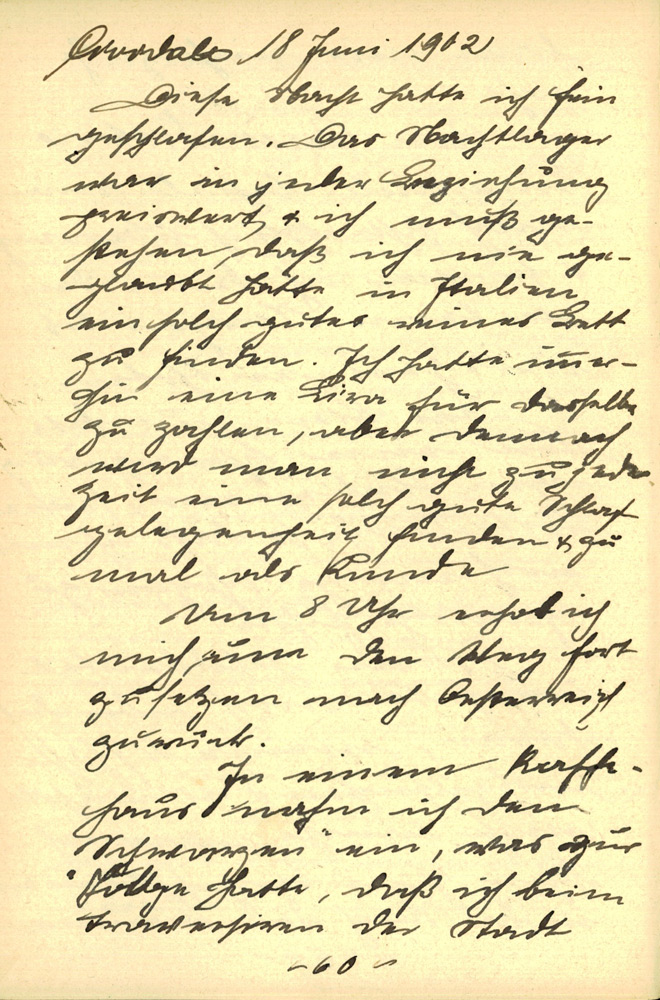 18 Juni 1902
Diese Nacht hatte ich fein
geschlafen. Das Nachtlager
war in jeder Beziehung
preiswert & ich muß ge-
stehen, daß ich nie ge-
glaubt hätte in Italien
ein solch gutes reines Bett
zu finden. Ich hatte immer-
hin eine Lira für dasselbe
zu zahlen, aber demnach
wird man nicht zu jeder
Zeit eine solch gute Schlaf
gelegenheit finden & zu
mal als Kunde
Um 8 Uhr erhob ich
mich, um den Weg fort
zusetzen nach Oesterreich
zurück.
In einem Kaffe-
haus nahm ich den
"Schwarzen" ein, was zur
Folge hatte, daß ich beim
traversiren der Stadt
- 60 -